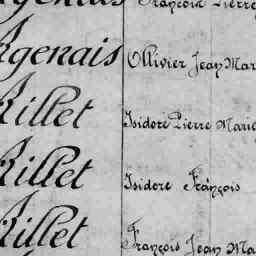 François Pierre
Agenais Ollivier Jean Mar
Aillet Isidore Pierre Marie
Aillet Isidore François
Aillet François Jean Ma